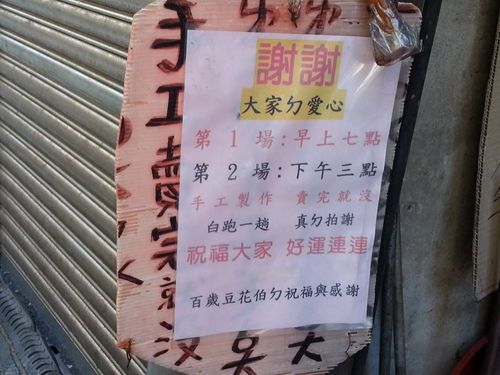 謝謝
大家勾愛心
第1場:早上七點
第2場:下午三點
手工製作 賣完就沒
白跑一趟 真勾拍謝
祝福大家 好運連連
百歲豆花伯勾祝福與感謝
手工賣完就沒